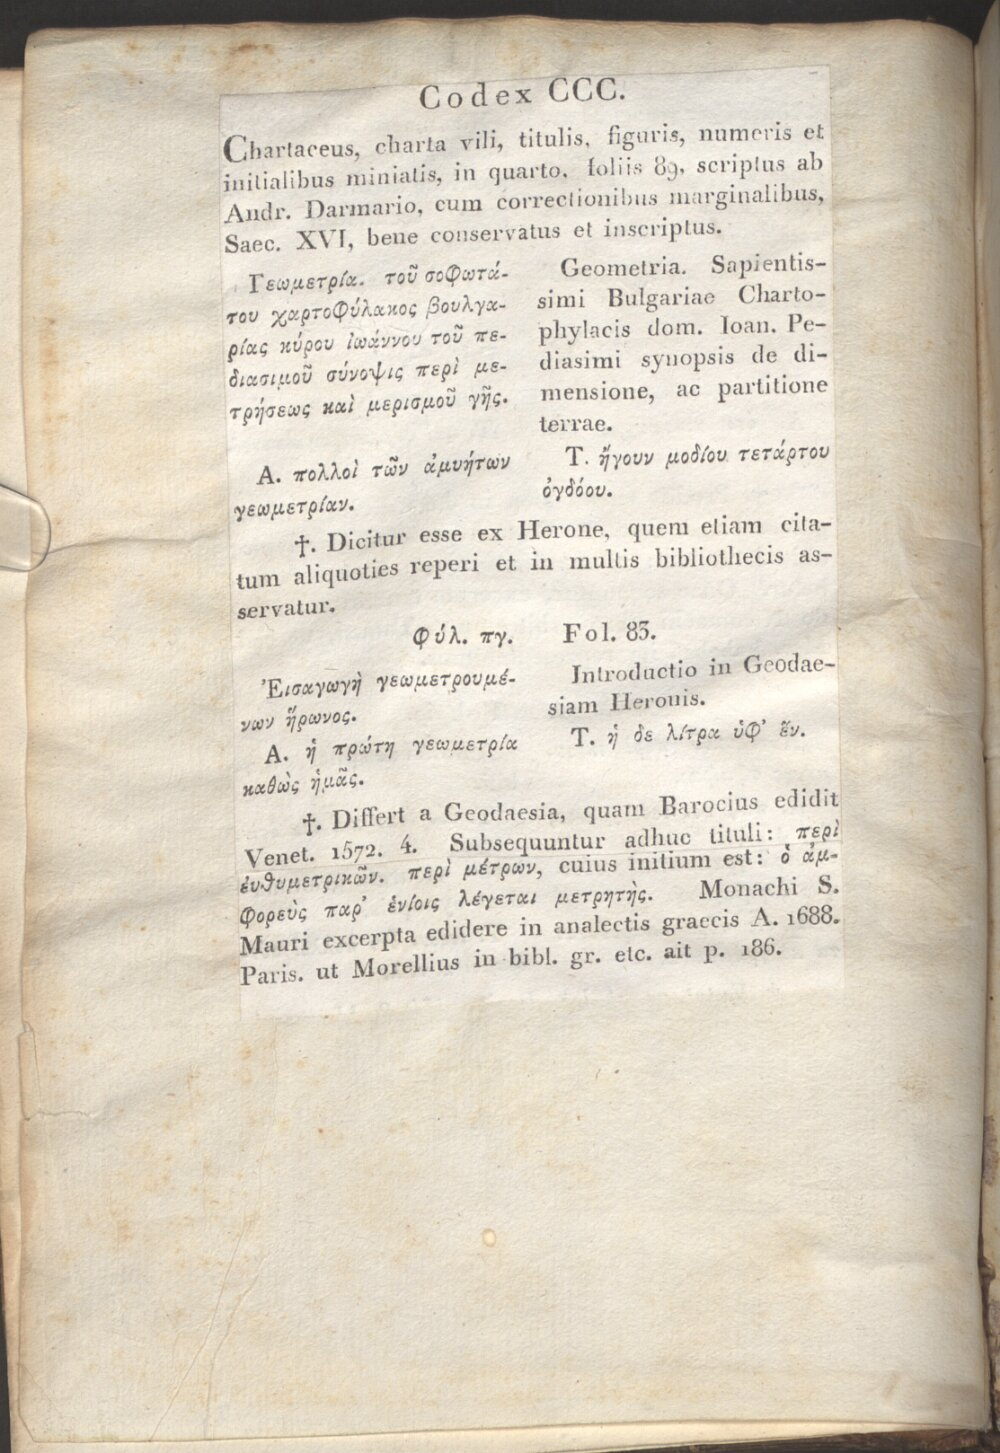 Codex CCC.
Chartaceus, charta vili, titulis, figuris, numeris et
initialibus miniatis, in quarto, foliis 89, scriptus ab
Andr. Darmario, cum correctionibus marginalibus,
Saec. XVI, bene conservatus et inscriptus.
Γεωμετρία. τοῦ σοφωτά-
του χαρτοφύλακος βουλγα-
ρίας κύρου ἰωάννου τοῦ πε-
διασιμοῦ σύνοψις περὶ με-
τρήσεως καὶ μερισμοῦ γῆς.
Geometria. Sapientis-
simi Bulgariae Charto-
phylacis dom. Ioan. Pe-
diasimi synopsis de di-
mensione, ac partitione
terrae.
Α. πολλοὶ τῶν ἀμυήτων
γεωμετρίαν.
Τ. ἤγουν μοδίου τετάρτου
ὀγδόου.
†. Dicitur esse ex Herone, quem etiam cita-
tum aliquoties reperi et in multis bibliothecis as-
servatur.
Φύλ. πγ.
Fol. 83.
Ἐισαγωγὴ γεωμετρουμέ-
νων ἥρωνος.
Introductio in Geodae-
siam Heronis.
Α. ἡ πρώτη γεωμετρία
καθὼς ἡμᾶς.
Τ. ἡ δε λίτρα ὑφ' ἕν.
†. Differt a Geodaesia, quam Barocius edidit
Venet. 1572. 4. Subsequuntur adhuc tituli: περὶ
ἐυθυμετρικῶν. περὶ μέτρων, cuius initium est: ὁ ἀμ-
φορεὺς παρ' ἐνίοις λέγεται μετρητὴς. Monachi S.
Mauri excerpta edidere in analectis graecis A. 1688.
Paris. ut Morellius in bibl. gr. etc. ait p. 186.